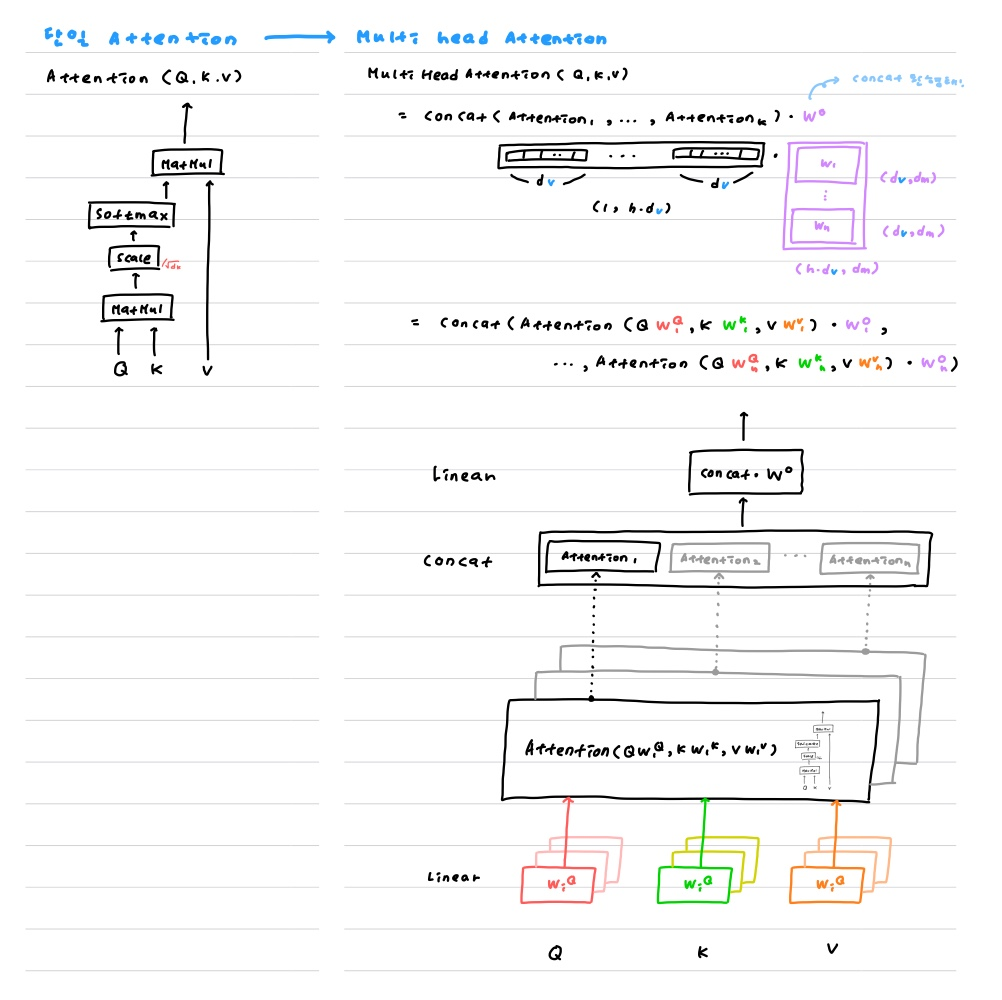 단일 Attention → Multi head Attention
Attention (Q, K, V)
MatMul
Softmax
Scale /√dk
MatMul
Q K V
Multi Head Attention ( Q, K, V)
concat
= concat ( Attention₁ , ... , Attentionₕ ) · W⁰
... · W₁ (dv, dm)
dv dv
(1, h·dv)
Wₕ (dv, dm)
(h·dv, dm)
= concat (Attention (Q W₁Q, K W₁K, V W₁V) · W₁⁰ ,
..., Attention (Q WₕQ, K WₕK, V WₕV) · Wₕ⁰)
Linear concat · W⁰
concat Attention₁ Attention₂ ... Attentionₕ
Attention (Q WᵢQ, K WᵢK, V WᵢV)
MatMul
Softmax
Scale
MatMul
Q K V
Linear WᵢQ WᵢQ WᵢQ
Q K V